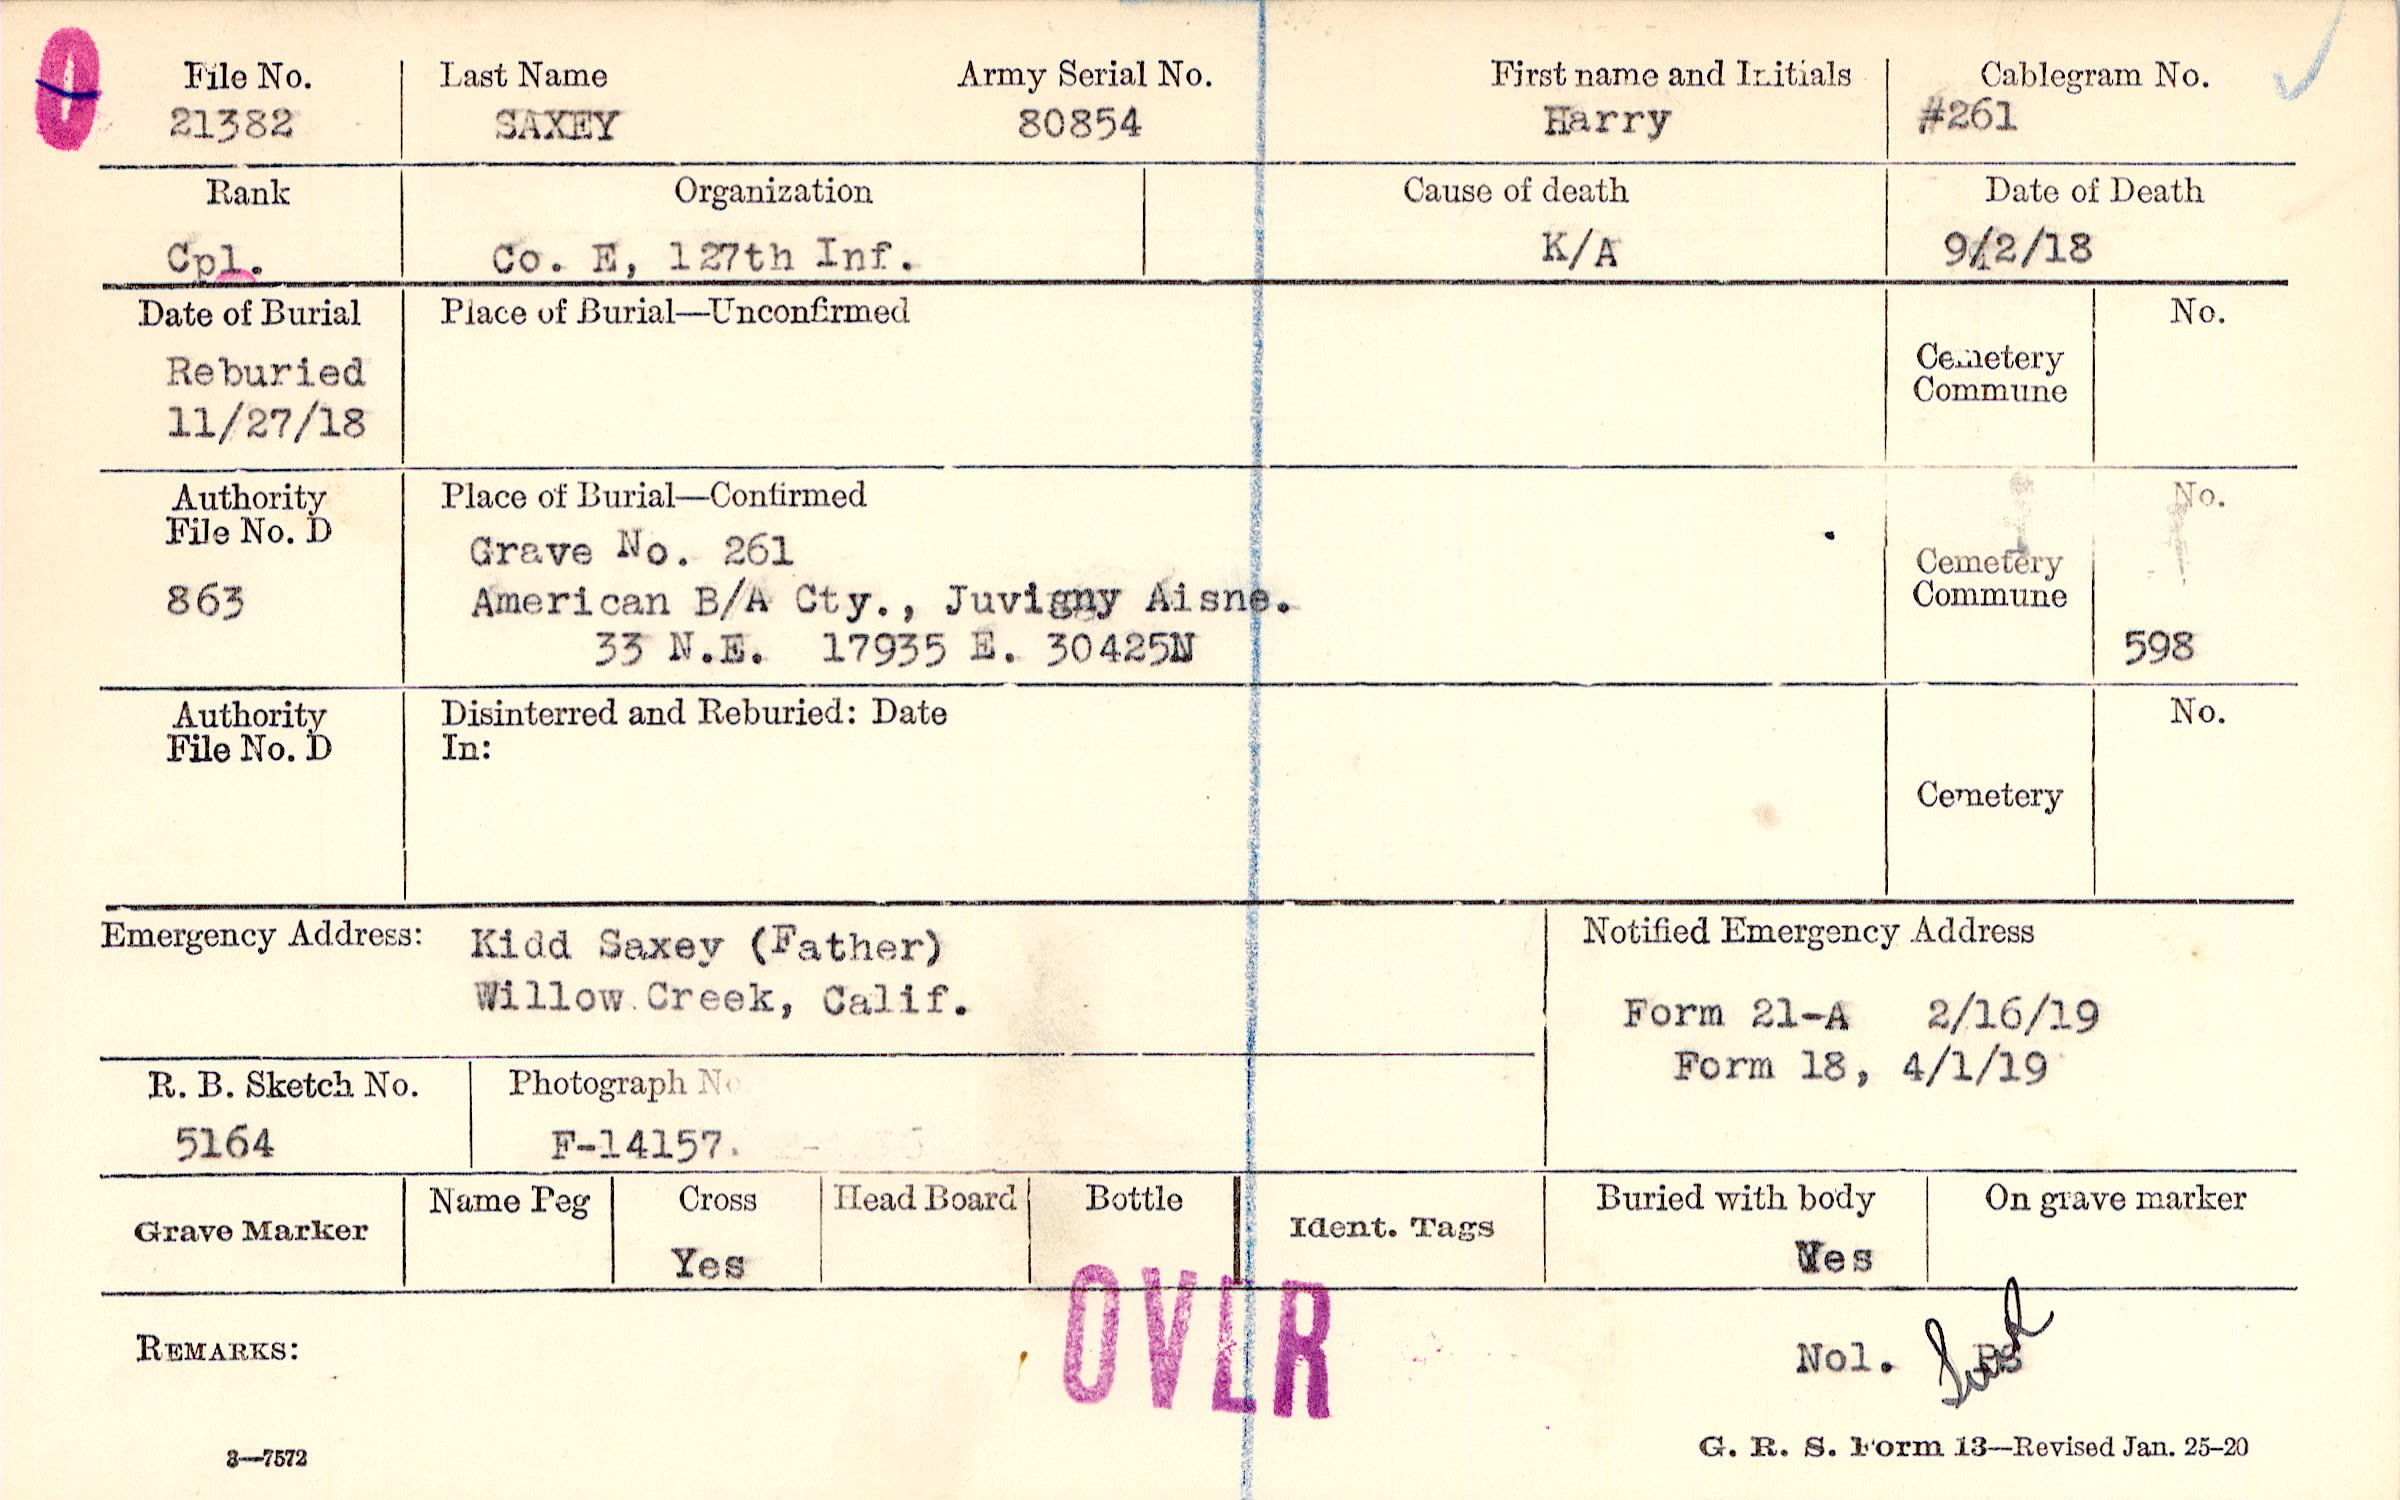 File No. Last Name Army Serial No. First name and Initials Cablegram No.
21382 SAXEY 80854 Harry #261
Rank Organization Cause of death Date of Death
Cpl. Co. E, 127th Inf. K/A 9/2/18
Date of Burial Place of Burial—Unconfirmed No.
Reburied
11/27/18
Cemetery
Commune
Authority
File No. D
863
Place of Burial—Confirmed No.
Grave No. 261
American B/A Cty., Juvigny Aisne.
33 N.E. 17935 E. 30425N
Cemetery
Commune
598
Authority
File No. D
Disinterred and Reburied: Date
In:
No.
Cemetery
Emergency Address: Kidd Saxey (Father)
Willow Creek, Calif.
Notified Emergency Address
Form 21-A 2/16/19
Form 18, 4/1/19
R. B. Sketch No. Photograph No
5164 F-14157.
Grave Marker
Name Peg Cross Head Board Bottle
Yes
Ident. Tags
Buried with body On grave marker
Yes
OVER
REMARKS:
Nol.
3—7572
G. R. S. Form 13—Revised Jan. 25-20